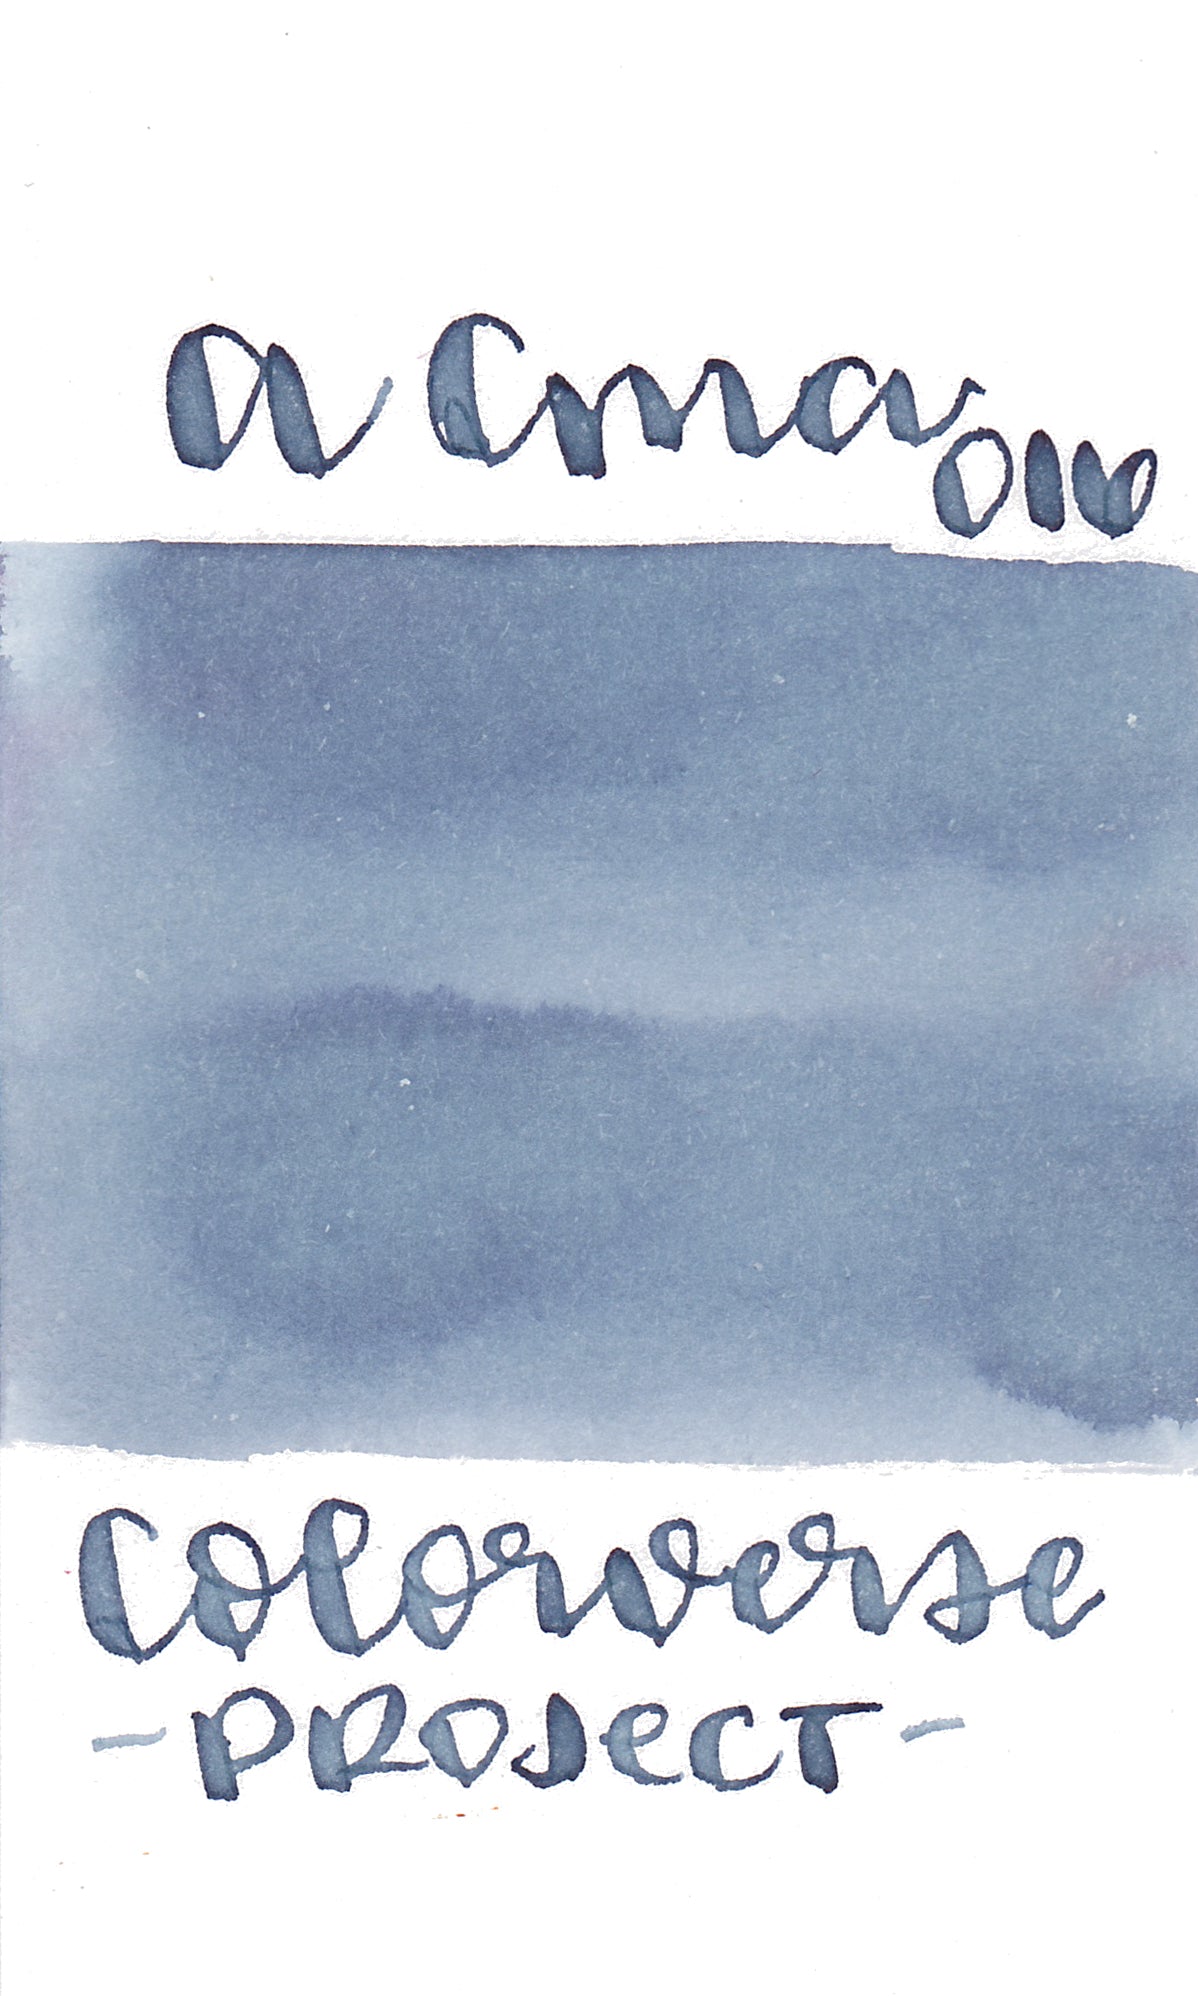 a Cma 016
Colorverse
- PROJeCT -